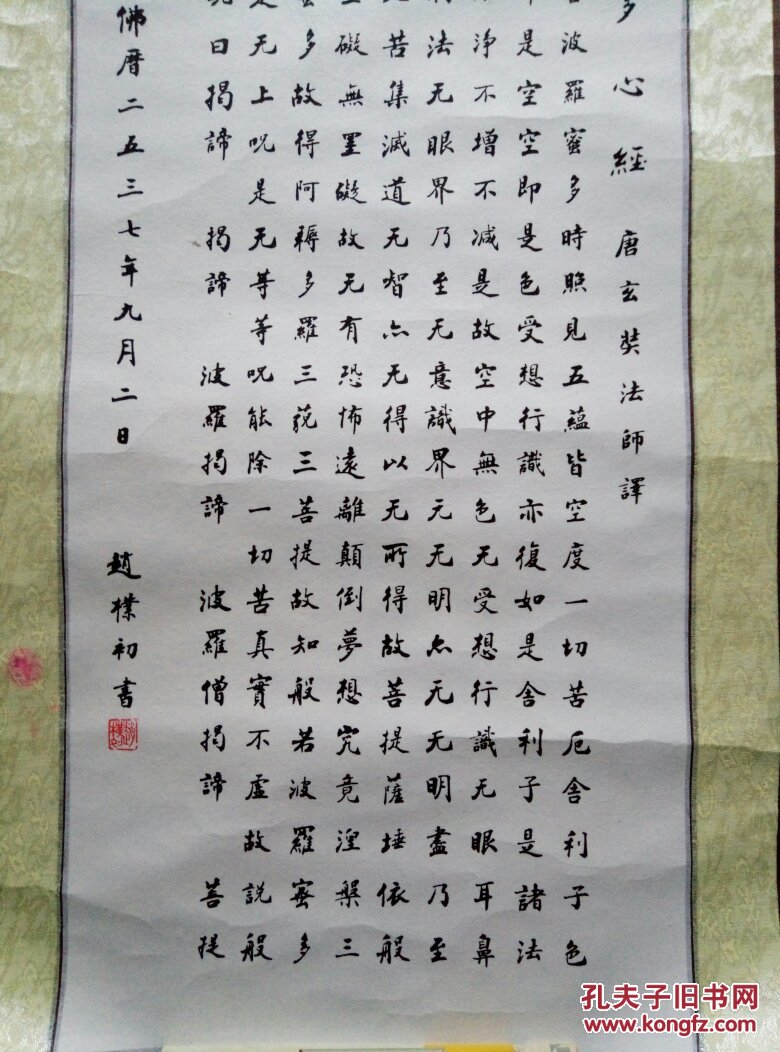 多心經 唐玄奘法師譯
波羅蜜多時照見五蘊皆空度一切苦厄舍利子色
是空空即是色受想行識亦復如是舍利子是諸法
淨不增不減是故空中無色无受想行識无眼耳鼻
法无眼界乃至无意識界无无明亦无无明盡乃至
苦集滅道无智亦无得以无所得故菩提薩埵依般
礙無罣礙故无有恐怖遠離顛倒夢想究竟涅槃三
多故得阿耨多羅三藐三菩提故知般若波羅蜜多
是无上呪是无等等呪能除一切苦真實不虛故說般
曰揭諦 揭諦 波羅揭諦 波羅僧揭諦 菩提
佛曆二五三七年九月二日 趙樸初書
孔夫子旧书网
kongfz.com